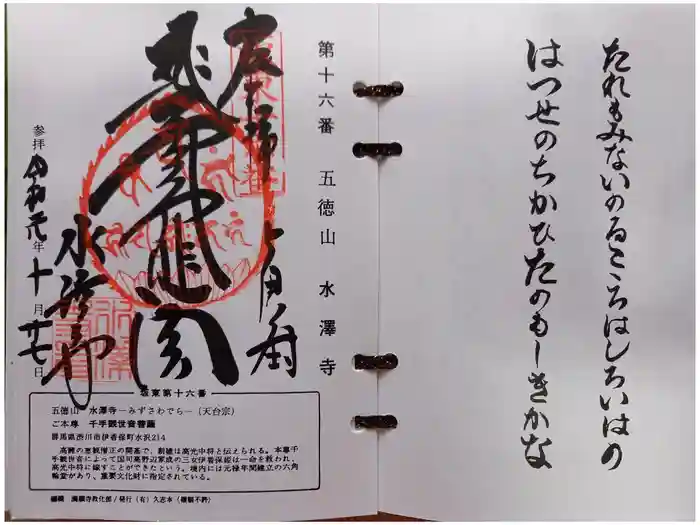 たれもみないのるこころはしろいはの
はつせのちかひたのもしきかな
第十六番 五徳山 水澤寺
水澤寺
参拝 令和元年十月廿七日
坂東第十六番
五徳山 水澤寺―みずさわでら―（天台宗）
ご本尊 千手観世音菩薩
群馬県渋川市伊香保町水沢214
高麗の恵観僧正の開基で、創建は高光中将と伝えられる。本尊千
手観世音によって国司高野辺家成の三女伊香保姫は一命を救われ、
高光中将に嫁すことができたという。境内には元禄年間建立の六角
輪堂があり、重要文化財に指定されている。
編纂 満願寺教化部/発行（有）久志本（複製不許）